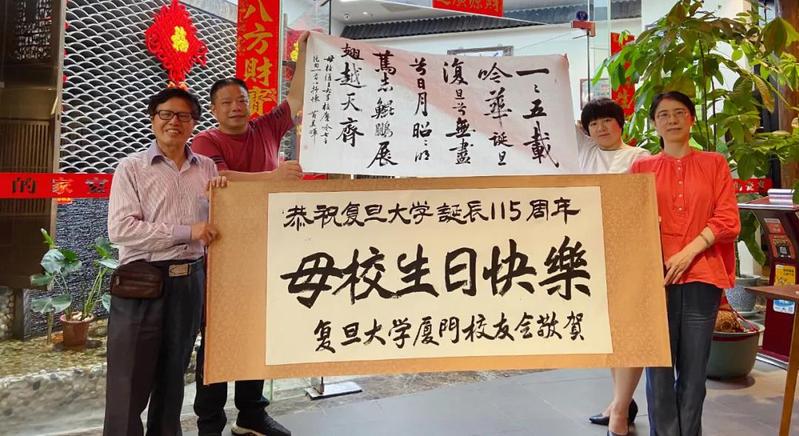 八方财
一〻五載
吟華誕旦
復旦兮無盡
日月昭〻
篤志鯤鵬展
翅越天齊
的家宴
恭祝复旦大学誕辰115周年
母校生日快樂
复旦大学厦門校友会敬賀